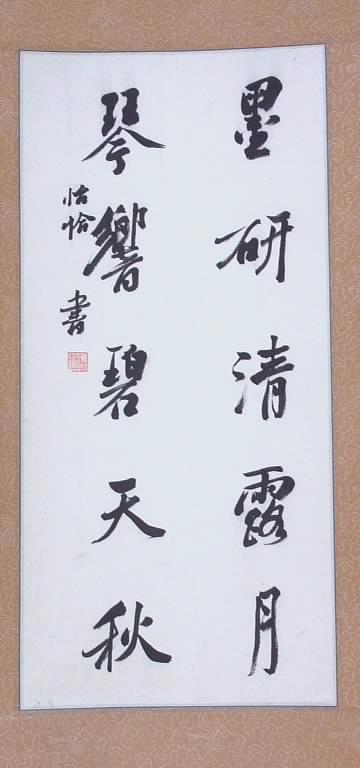 墨研清露月
琴響碧天秋
怡怡 書